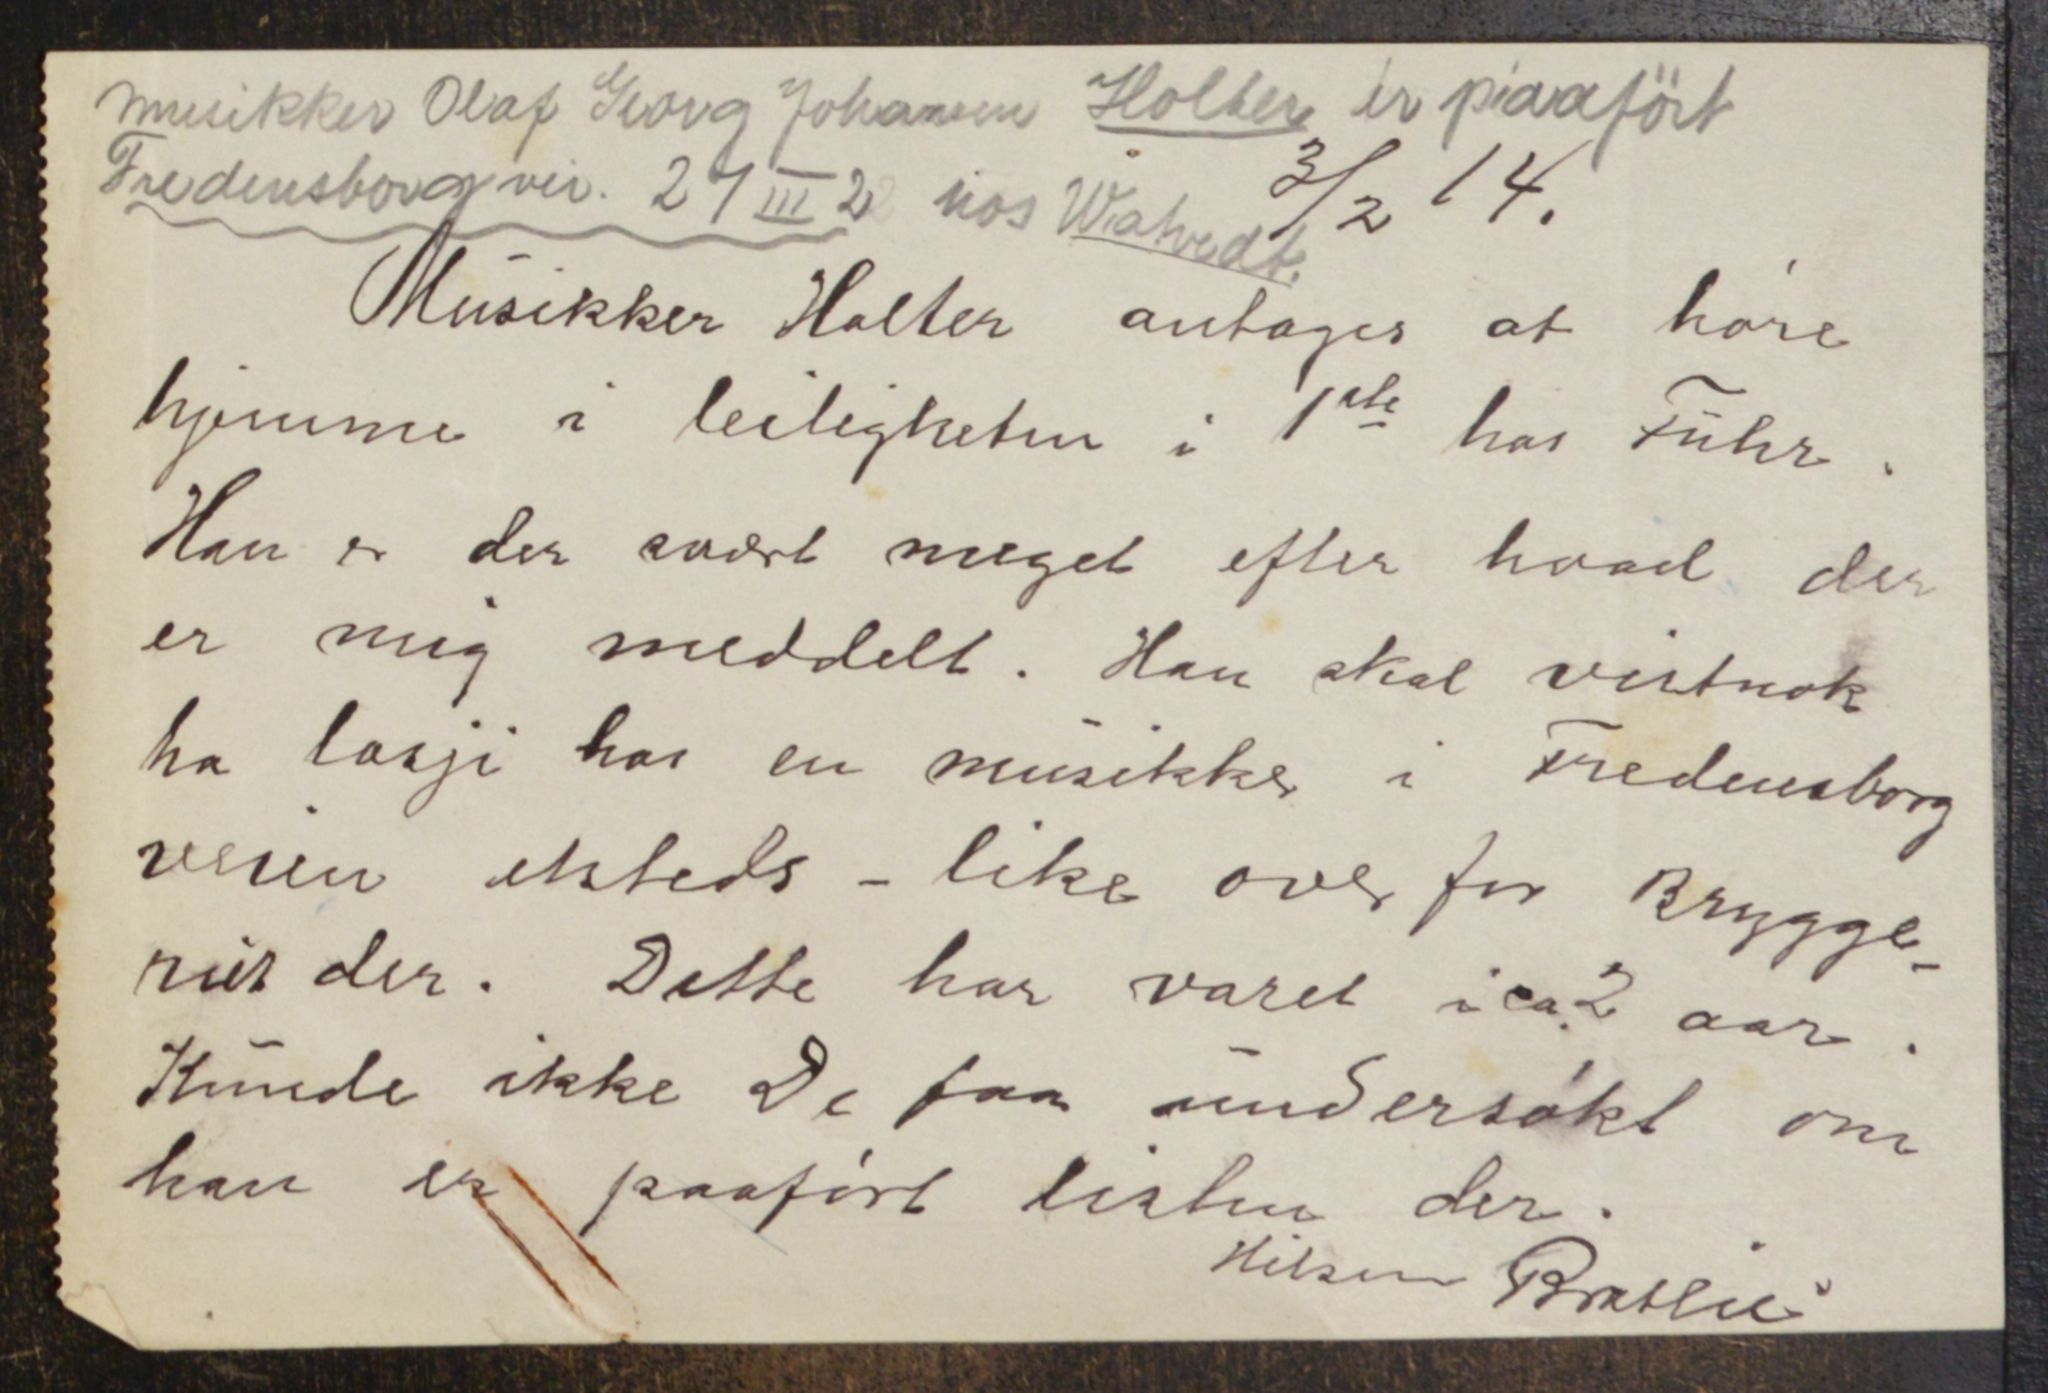 Musikker Olaf Georg Johansen Holter er paaført
Fredensborgvei. 27 III 2 hos Watvedt.
3/2 14.
Musikker Holter antages at høre
hjemme i leiligheten i 1ste hos Führ.
Han er der svært meget efter hvad der
er mig meddelt. Han skal vistnok
ha losji hos en musikker i Fredensborg
veien etsteds – like over for Brygge-
riet der. Dette har varet i ca. 2 aar.
Kunde ikke De faa undersøkt om
han er paaført listen der.
Hilsen Bratlie